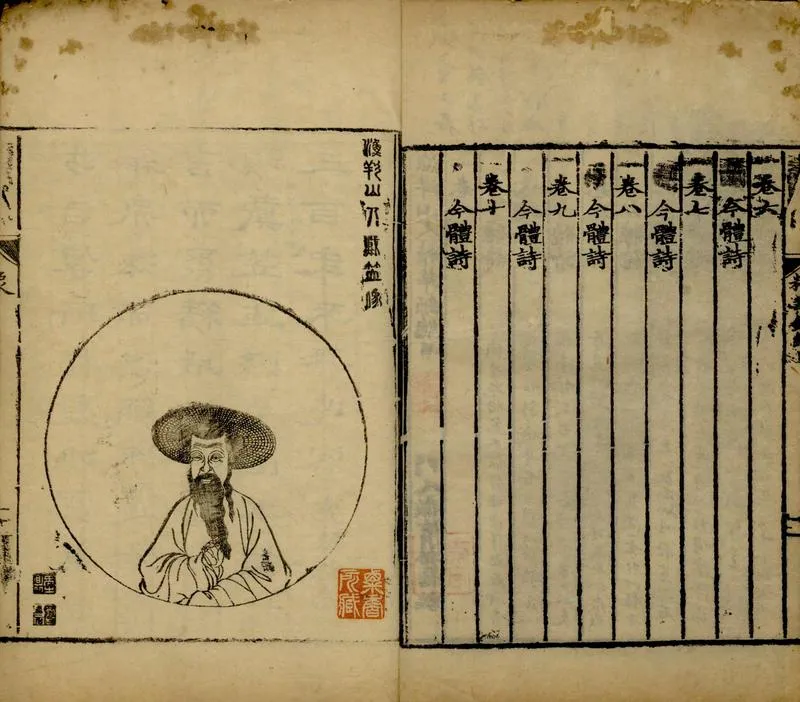 卷六
今體詩
卷七
今體詩
卷八
今體詩
卷九
今體詩
卷十
今體詩
漁洋山人戴笠像